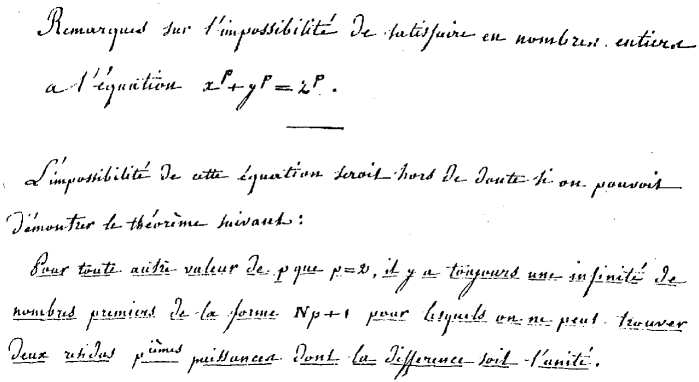 Remarques sur l'impossibilité de satisfaire en nombres entiers
a l'équation x^p + y^p = z^p.
L'impossibilité de cette équation seroit hors de doute si on pouvoit
démontrer le théorème suivant :
Pour toute autre valeur de p que p=2, il y a toujours une infinité de
nombres premiers de la forme Np+1 pour lesquels on ne peut trouver
deux résidus p^ièmes puissances dont la difference soit l'unité.